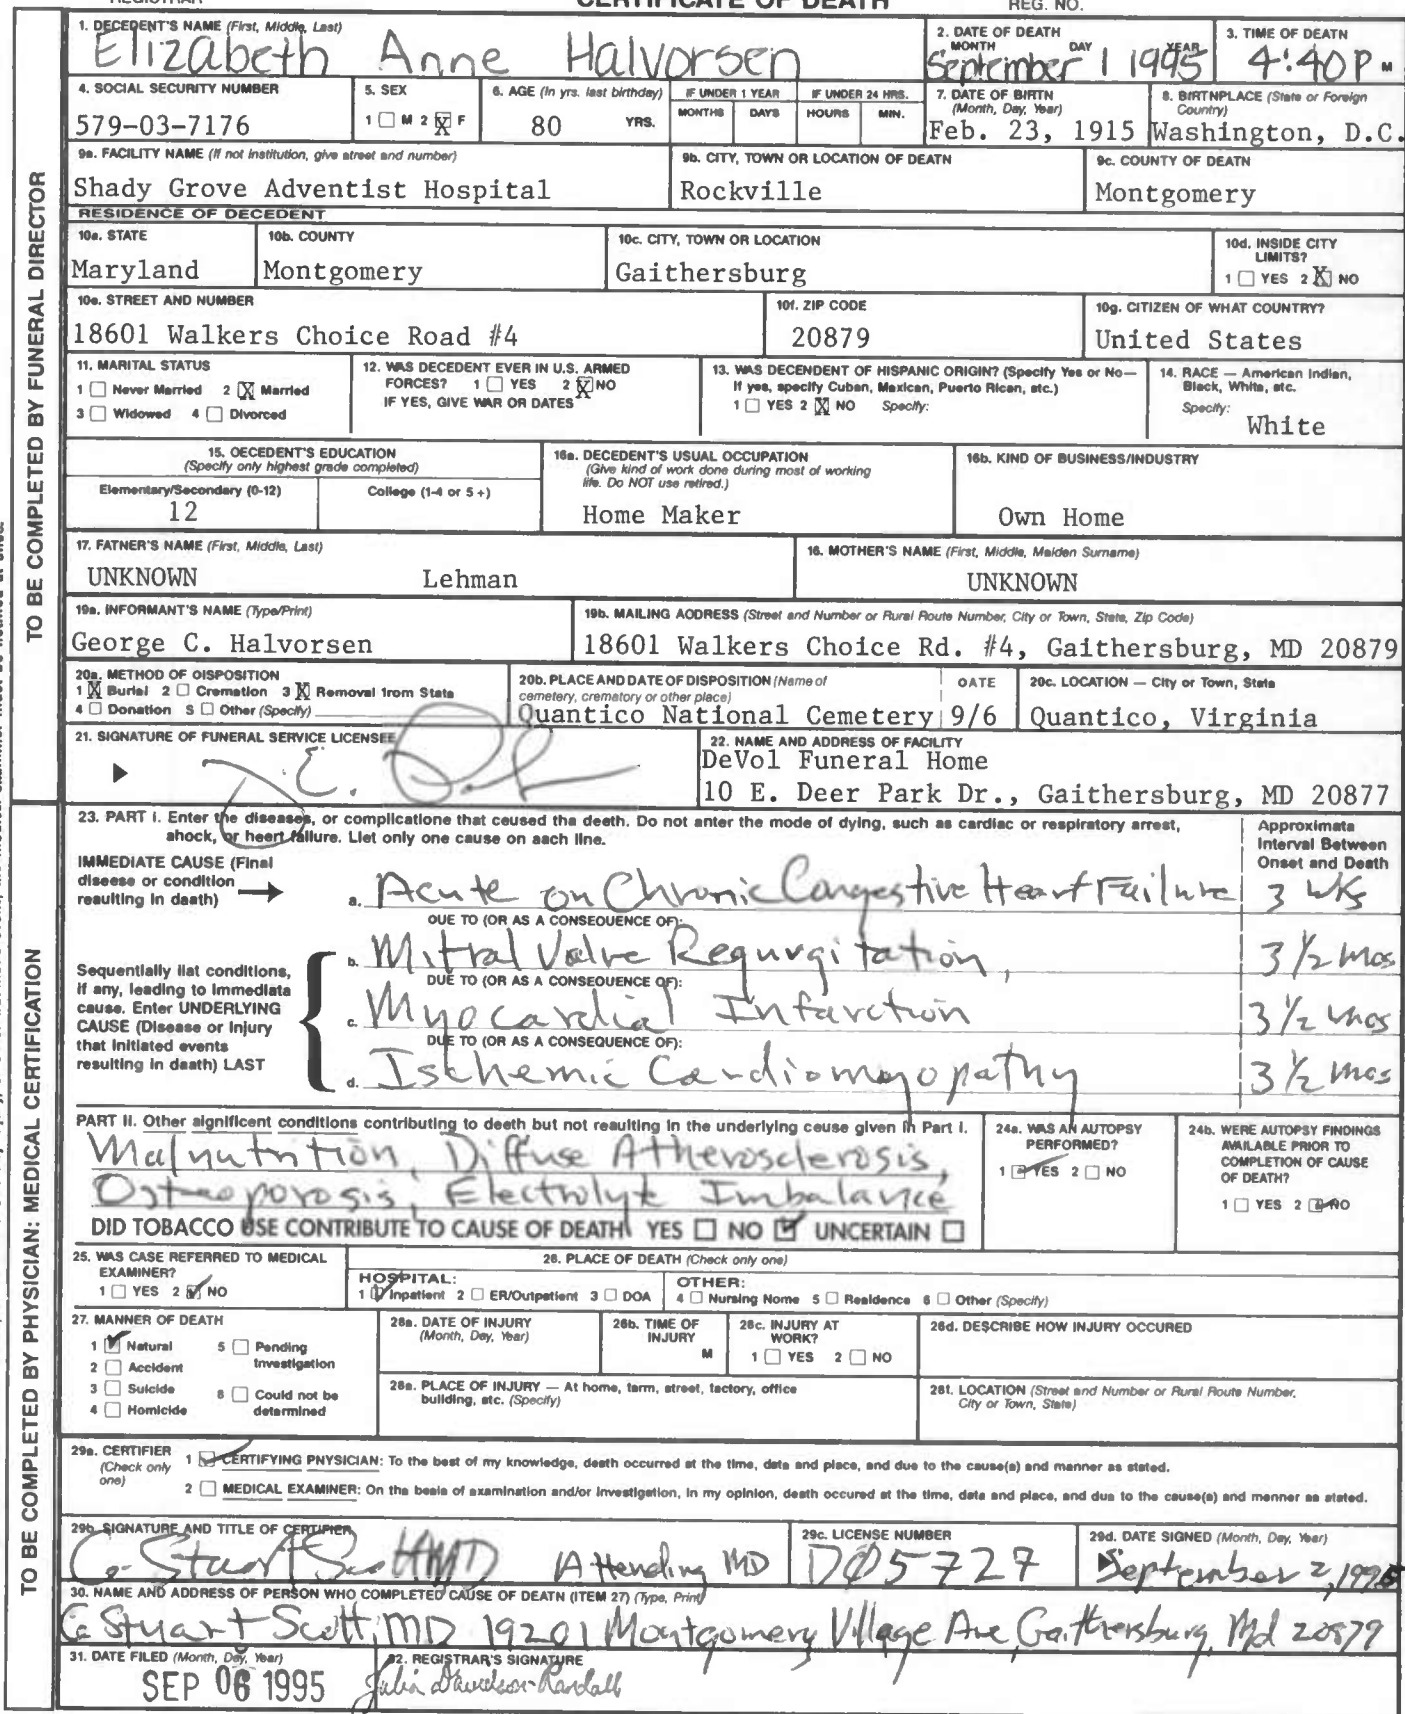 CERTIFICATE OF DEATH
REGISTRAR
REG. NO.
TO BE COMPLETED BY FUNERAL DIRECTOR
1. DECEDENT'S NAME (First, Middle, Last)
Elizabeth Anne Halvorsen
2. DATE OF DEATH
MONTH DAY YEAR
September 1 1995
3. TIME OF DEATH
4:40 P M
4. SOCIAL SECURITY NUMBER
579-03-7176
5. SEX
1 ☐ M 2 ☒ F
6. AGE (In yrs. last birthday)
80 YRS.
IF UNDER 1 YEAR
MONTHS DAYS
IF UNDER 24 HRS.
HOURS MIN.
7. DATE OF BIRTH
(Month, Day, Year)
Feb. 23, 1915
8. BIRTHPLACE (State or Foreign
Country)
Washington, D.C.
9a. FACILITY NAME (If not institution, give street and number)
Shady Grove Adventist Hospital
9b. CITY, TOWN OR LOCATION OF DEATH
Rockville
9c. COUNTY OF DEATH
Montgomery
RESIDENCE OF DECEDENT
10a. STATE
Maryland
10b. COUNTY
Montgomery
10c. CITY, TOWN OR LOCATION
Gaithersburg
10d. INSIDE CITY
LIMITS?
1 ☐ YES 2 ☒ NO
10e. STREET AND NUMBER
18601 Walkers Choice Road #4
10f. ZIP CODE
20879
10g. CITIZEN OF WHAT COUNTRY?
United States
11. MARITAL STATUS
1 ☐ Never Married 2 ☒ Married
3 ☐ Widowed 4 ☐ Divorced
12. WAS DECEDENT EVER IN U.S. ARMED
FORCES? 1 ☐ YES 2 ☒ NO
IF YES, GIVE WAR OR DATES
13. WAS DECENDENT OF HISPANIC ORIGIN? (Specify Yes or No—
If yes, specify Cuban, Mexican, Puerto Rican, etc.)
1 ☐ YES 2 ☒ NO Specify:
14. RACE — American Indian,
Black, White, etc.
Specify:
White
15. DECEDENT'S EDUCATION
(Specify only highest grade completed)
Elementary/Secondary (0-12)
12
College (1-4 or 5 +)
16a. DECEDENT'S USUAL OCCUPATION
(Give kind of work done during most of working
life. Do NOT use retired.)
Home Maker
16b. KIND OF BUSINESS/INDUSTRY
Own Home
17. FATHER'S NAME (First, Middle, Last)
UNKNOWN Lehman
18. MOTHER'S NAME (First, Middle, Maiden Surname)
UNKNOWN
19a. INFORMANT'S NAME (Type/Print)
George C. Halvorsen
19b. MAILING ADDRESS (Street and Number or Rural Route Number, City or Town, State, Zip Code)
18601 Walkers Choice Rd. #4, Gaithersburg, MD 20879
20a. METHOD OF DISPOSITION
1 ☒ Burial 2 ☐ Cremation 3 ☒ Removal from State
4 ☐ Donation 5 ☐ Other (Specify)
20b. PLACE AND DATE OF DISPOSITION (Name of
cemetery, crematory or other place)
Quantico National Cemetery
DATE
9/6
20c. LOCATION — City or Town, State
Quantico, Virginia
21. SIGNATURE OF FUNERAL SERVICE LICENSEE
22. NAME AND ADDRESS OF FACILITY
DeVol Funeral Home
10 E. Deer Park Dr., Gaithersburg, MD 20877
TO BE COMPLETED BY PHYSICIAN: MEDICAL CERTIFICATION
23. PART I. Enter the diseases, or complications that caused the death. Do not enter the mode of dying, such as cardiac or respiratory arrest,
shock, or heart failure. List only one cause on each line.
Approximate
Interval Between
Onset and Death
IMMEDIATE CAUSE (Final
disease or condition
resulting in death)
a. Acute on Chronic Congestive Heart Failure 3 wks
DUE TO (OR AS A CONSEQUENCE OF):
Sequentially list conditions,
if any, leading to immediate
cause. Enter UNDERLYING
CAUSE (Disease or injury
that initiated events
resulting in death) LAST
b. Mitral Valve Regurgitation, 3 1/2 mos
DUE TO (OR AS A CONSEQUENCE OF):
c. Myocardial Infarction 3 1/2 mos
DUE TO (OR AS A CONSEQUENCE OF):
d. Ischemic Cardiomyopathy 3 1/2 mos
PART II. Other significant conditions contributing to death but not resulting in the underlying cause given in Part I.
Malnutrition, Diffuse Atherosclerosis,
Osteoporosis, Electrolyte Imbalance
DID TOBACCO USE CONTRIBUTE TO CAUSE OF DEATH YES ☐ NO ☑ UNCERTAIN ☐
24a. WAS AN AUTOPSY
PERFORMED?
1 ☑ YES 2 ☐ NO
24b. WERE AUTOPSY FINDINGS
AVAILABLE PRIOR TO
COMPLETION OF CAUSE
OF DEATH?
1 ☐ YES 2 ☑ NO
25. WAS CASE REFERRED TO MEDICAL
EXAMINER?
1 ☐ YES 2 ☑ NO
26. PLACE OF DEATH (Check only one)
HOSPITAL:
1 ☑ Inpatient 2 ☐ ER/Outpatient 3 ☐ DOA
OTHER:
4 ☐ Nursing Home 5 ☐ Residence 6 ☐ Other (Specify)
27. MANNER OF DEATH
1 ☑ Natural 5 ☐ Pending
Investigation
2 ☐ Accident
3 ☐ Suicide 6 ☐ Could not be
determined
4 ☐ Homicide
28a. DATE OF INJURY
(Month, Day, Year)
28b. TIME OF
INJURY
M
28c. INJURY AT
WORK?
1 ☐ YES 2 ☐ NO
28d. DESCRIBE HOW INJURY OCCURED
28e. PLACE OF INJURY — At home, farm, street, factory, office
building, etc. (Specify)
28f. LOCATION (Street and Number or Rural Route Number,
City or Town, State)
29a. CERTIFIER
(Check only
one)
1 ☑ CERTIFYING PHYSICIAN: To the best of my knowledge, death occurred at the time, date and place, and due to the cause(s) and manner as stated.
2 ☐ MEDICAL EXAMINER: On the basis of examination and/or investigation, in my opinion, death occured at the time, date and place, and due to the cause(s) and manner as stated.
29b. SIGNATURE AND TITLE OF CERTIFIER
C. Stuart Scott MD Attending MD
29c. LICENSE NUMBER
DØ5727
29d. DATE SIGNED (Month, Day, Year)
September 2, 1995
30. NAME AND ADDRESS OF PERSON WHO COMPLETED CAUSE OF DEATH (ITEM 27) (Type, Print)
C. Stuart Scott, MD 19201 Montgomery Village Ave Gaithersburg, Md 20879
31. DATE FILED (Month, Day, Year)
SEP 06 1995
32. REGISTRAR'S SIGNATURE
Julia Davidson-Randall